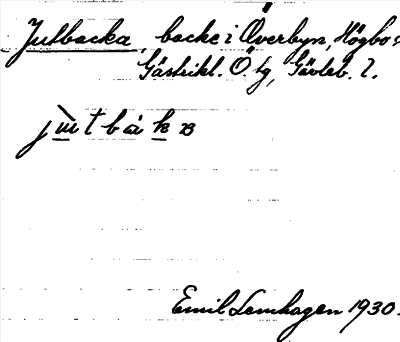 Jutbacka, backe i Överbyn, Högbo s
Gästrikl. Ö. tg, Gävleb. l.
jutbáka
Emil Lemhagen 1930.